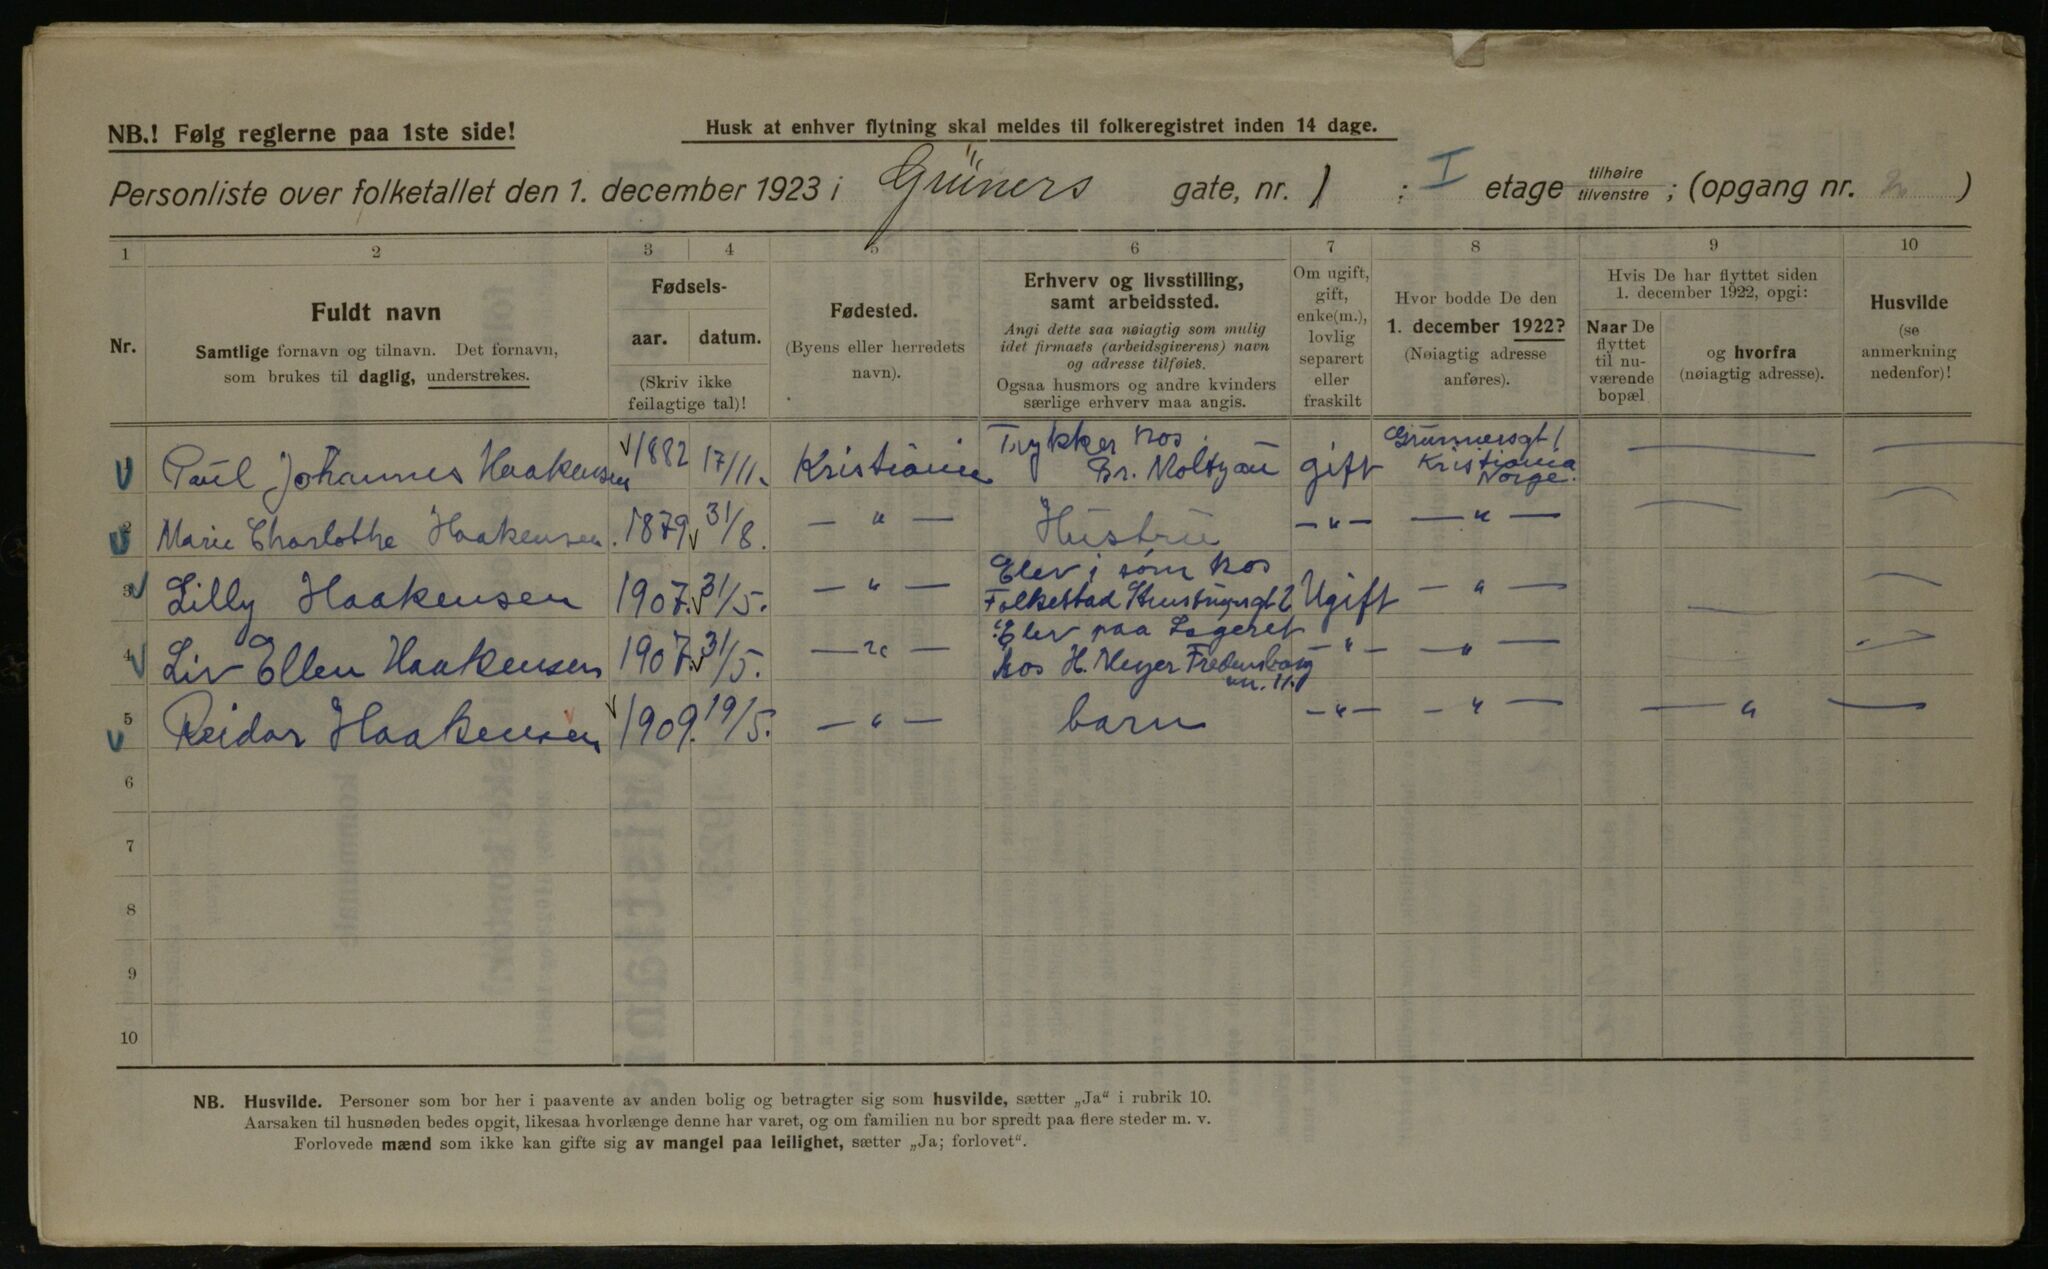 NB.! Følg reglerne paa 1ste side!
Husk at enhver flytning skal meldes til folkeregistret inden 14 dage.
Personliste over folketallet den 1. december 1923 i Grüners gate, nr. 1 : I etage tilhøire tilvenstre ; (opgang nr. )
1 2 3 4 5 6 7 8 9 10
Nr.
Fuldt navn
Samtlige fornavn og tilnavn. Det fornavn,
som brukes til daglig, understrekes.
Fødsels-
aar. datum.
(Skriv ikke
feilagtige tal)!
Fødested.
(Byens eller herredets
navn).
Erhverv og livsstilling,
samt arbeidssted.
Angi dette saa nøiagtig som mulig
idet firmaets (arbeidsgiverens) navn
og adresse tilføies.
Ogsaa husmors og andre kvinders
særlige erhverv maa angis.
Om ugift,
gift,
enke(m.),
lovlig
separert
eller
fraskilt
Hvor bodde De den
1. december 1922?
(Nøiagtig adresse
anføres).
Hvis De har flyttet siden
1. december 1922, opgi:
Naar De
flyttet
til nu-
værende
bopæl
og hvorfra
(nøiagtig adresse).
Husvilde
(se
anmerkning
nedenfor)!
Paul Johannes Haakensen 1882 17/11. Kristiania Trykker hos Br. Moltzau gift Grünnersgt 1 Kristiania Norge. — —
2 Marie Charlothe Haakensen. 1879 31/8. — " — Hustru — " — — " — — —
3 Lilly Haakensen 1907. 31/5. — " — Elev i søm hos Folkestad 2 Ugift — " — — —
4 Liv Ellen Haakensen 1907. 31/5. — " — Elev paa Lageret hos H. Meyer Fredensborg nr. 11. — " — — " — — —
5 Reidar Haakensen 1909. 19/5. — " — barn — " — — " — — " —
6
7
8
9
10
NB. Husvilde. Personer som bor her i paavente av anden bolig og betragter sig som husvilde, sætter „Ja" i rubrik 10.
Aarsaken til husnøden bedes opgit, likesaa hvorlænge denne har varet, og om familien nu bor spredt paa flere steder m. v.
Forlovede mænd som ikke kan gifte sig av mangel paa leilighet, sætter „Ja; forlovet".